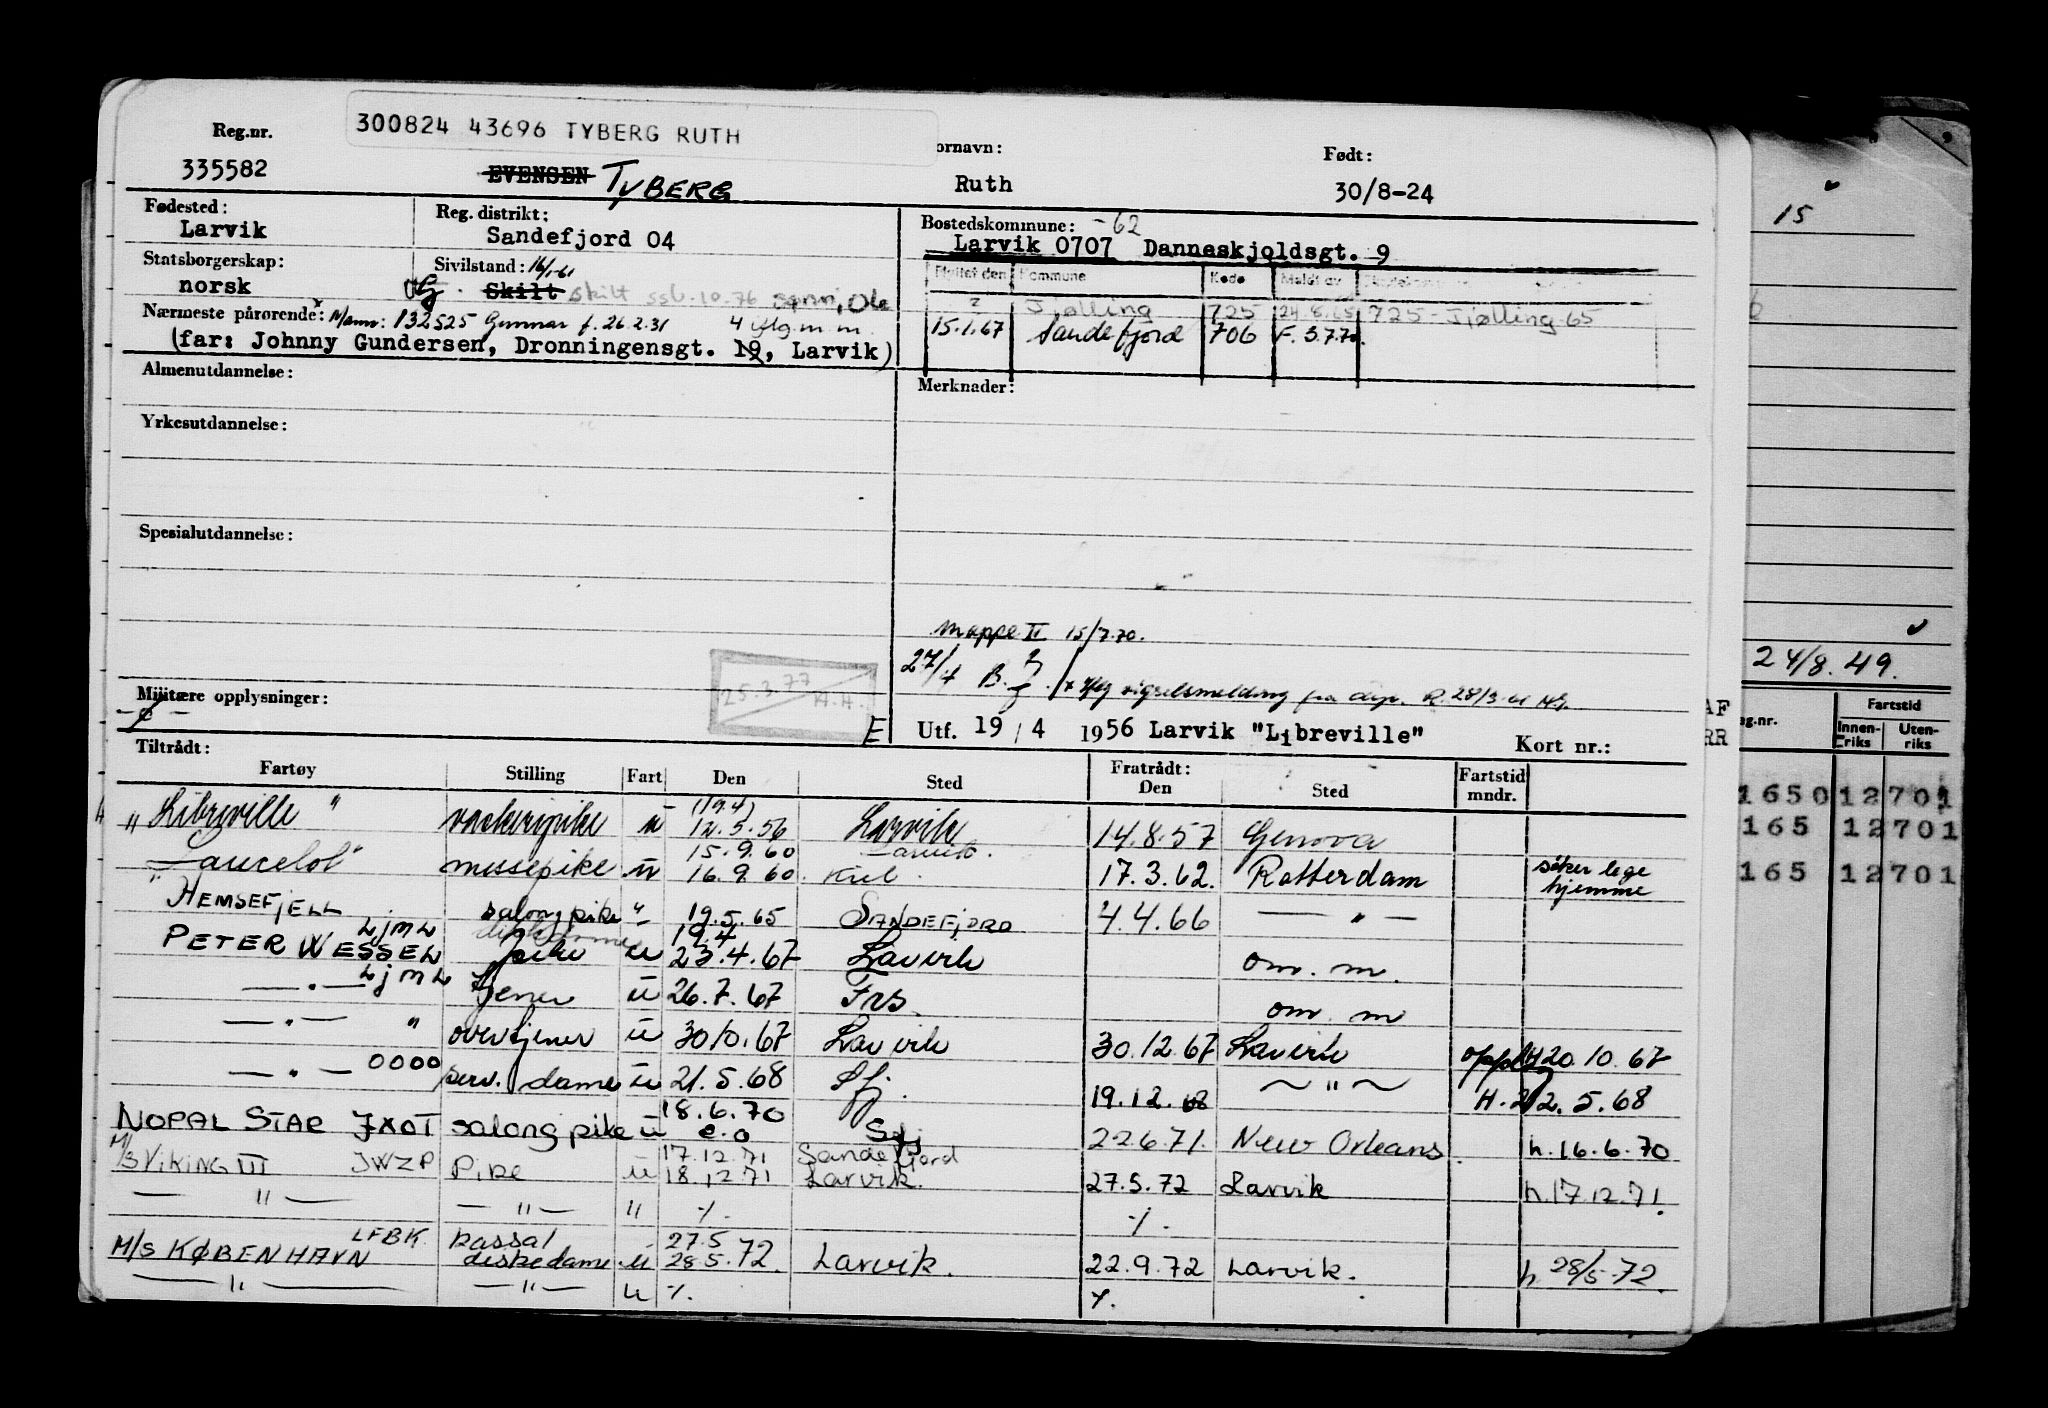 300824 43696 TYBERG RUTH
Reg.nr. ornavn: Født:
335582 EVENSEN TYBERG Ruth 30/8-24
Fødested: Reg. distrikt: Bostedskommune: -62
Larvik Sandefjord 04 Larvik 0707 Danneskjoldsgt. 9
Statsborgerskap: Sivilstand: 16/1-61 Kommune Kode Meldt av
norsk Skilt skilt ssb. 10.76
Jjølling 725 24.8.65 725 - Tjølling 65
Nærmeste pårørende: Mann: 132525 Gunnar f. 26.2.31
15.1.67 Sandefjord 706 F. 3.7.70.
(far: Johnny Gundersen, Dronningensgt. 19, Larvik)
Almenutdannelse: Merknader:
Yrkesutdannelse:
Spesialutdannelse:
mappe II 15/7.70.
25.3.77 H.H.
Militære opplysninger:
E Utf. 19 / 4 1956 Larvik "Libreville" Kort nr.:
Tiltrådt: Fratrådt:
Fartøy Stilling Fart Den Sted Den Sted Fartstid mndr.
(19.4)
"Libreville" vaskeripike u 12.5.56 Larvik 14.8.57 Genova
15.9.60 Larvik.
"Lancelot" messepike u 16.9.60. Kiel. 17.3.62. Rotterdam søker lege hjemme
HEMSEFJELL salongpike " 19.5.65 SANDEFJORD 4.4.66 — " —
LJML 19.4
PETER WESSEL pike u 23.4.67 Larvik om. m.
— " — LJML tjener u 26.7.67 Frs. om. m
— " — " overtjener u 30/0.67 Larvik 30.12.67 Larvik 20.10.67
— " — OOOO serv. dame u 21.5.68 Sfj. 19.12.68 — " — H. 22.5.68
18.6.70
NOPAL STAR JXOT salongpike u e.o Sfj 22.6.71. New Orleans. h. 16.6.70
17.12.71 Sandefjord
M/S VIKING III JWZP Pike u 18.12.71 Larvik. 27.5.72 Larvik h. 17.12.71.
— " — — " — " ⁒. ⁒.
LFBK. kassa/ 27.5
M/S KØBENHAVN diskedame u 28.5.72. Larvik. 22.9.72 Larvik. h 28/5-72.
— " — — " — u ⁒. ⁒.
15
24/8.49.
AF g.nr. Fartstid
RR Innenriks Utenriks
1650 12701
165 12701
165 12701